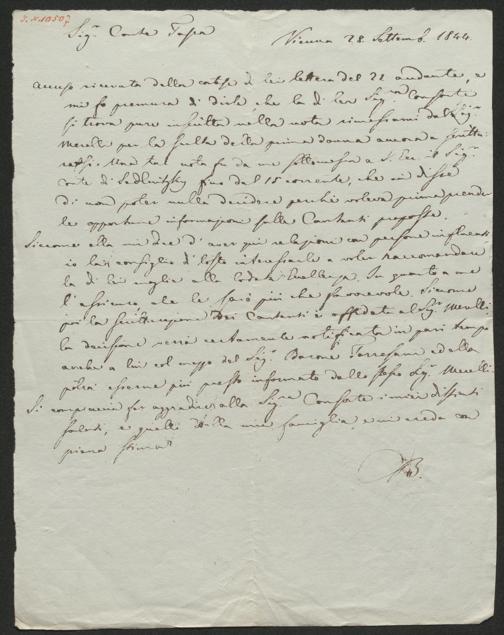 Sig.r Conte Tasca Vienna 28. Settemb. 1844.
accuso ricevuta della di lei lettera del 22 andante, e
mi fo premura di dirle che la di lei Sig.ra Consorte
si trova pure nella nota del Sig.r
Merelli per la scelta della prima donna ancora a
Una tal nota fu da me sottomessa a S. Ecc. il Sig.r
Conte di Sedlnitzky fino dal 15 corrente, che mi disse
di non poter nulla decidere perchè voleva prima prendere
le opportune informazioni sulle Cantanti proposte.
Siccome ella mi dice d'aver qui relazioni con persone influenti
io la consiglio di tosto interessarle a voler raccomandare
la di lei moglie alla lodata Eccellenza. In quanto a me
l'assicuro che le sarò più che favorevole. Siccome
poi la dei Cantanti è affidata al Sig.r Merelli
la decisione verrà certamente notificata in pari tempo
anche a lui col mezzo del Sig.r Barone Torresani ed ella
potrà esserne più presto informato dallo stesso Sig.r Merelli.
Si compiaccia far aggradire alla Sig.ra Consorte i miei distinti
saluti, e quelli della mia famiglia, e mi creda con
piena stima
B.